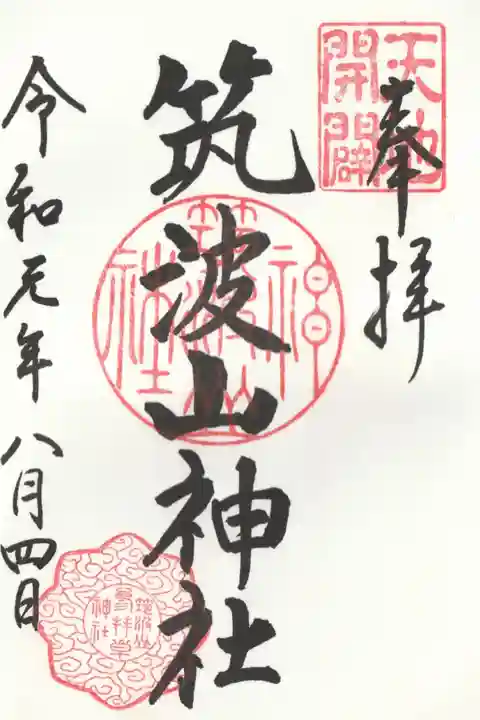 天地
開闢
奉拝
筑波山神社
筑波山
神社
令和元年八月四日
筑波山
参拝章
神社